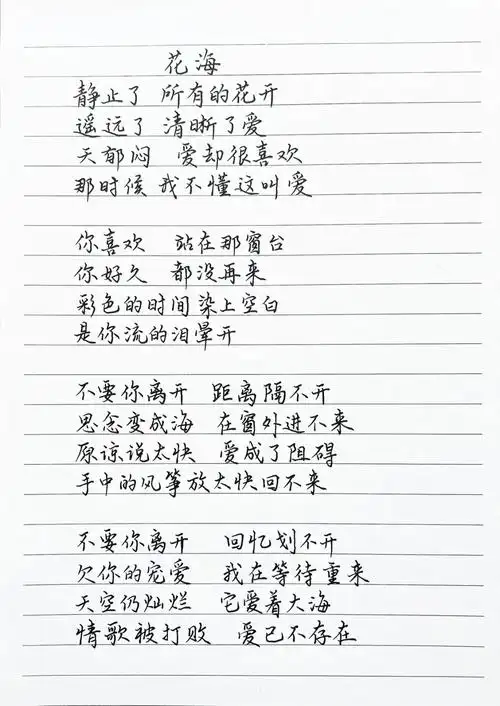 花海
静止了 所有的花开
遥远了 清晰了爱
天郁闷 爱却很喜欢
那时候 我不懂这叫爱
你喜欢 站在那窗台
你好久 都没再来
彩色的时间染上空白
是你流的泪晕开
不要你离开 距离隔不开
思念变成海 在窗外进不来
原谅说太快 爱成了阻碍
手中的风筝放太快回不来
不要你离开 回忆划不开
欠你的宠爱 我在等待重来
天空仍灿烂 它爱着大海
情歌被打败 爱已不存在